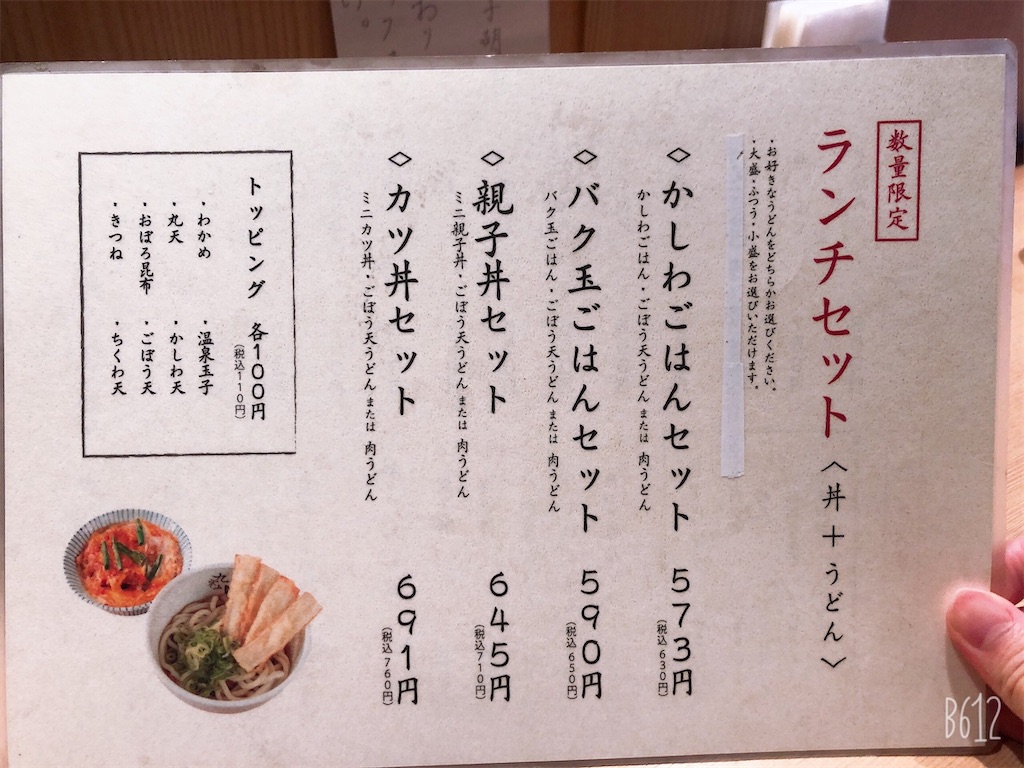 数量限定
ランチセット〈丼＋うどん〉
・お好きなうどんをどちらかお選びください。
・大盛・ふつう・小盛をお選びいただけます。
◇かしわごはんセット 573円
(税込 630円)
かしわごはん・ごぼう天うどん または 肉うどん
◇バク玉ごはんセット 590円
(税込 650円)
バク玉ごはん・ごぼう天うどん または 肉うどん
◇親子丼セット 645円
(税込 710円)
ミニ親子丼・ごぼう天うどん または 肉うどん
◇カツ丼セット 691円
(税込 760円)
ミニカツ丼・ごぼう天うどん または 肉うどん
トッピング 各100円
(税込110円)
・わかめ ・温泉玉子
・丸天 ・かしわ天
・おぼろ昆布 ・ごぼう天
・きつね ・ちくわ天
B612